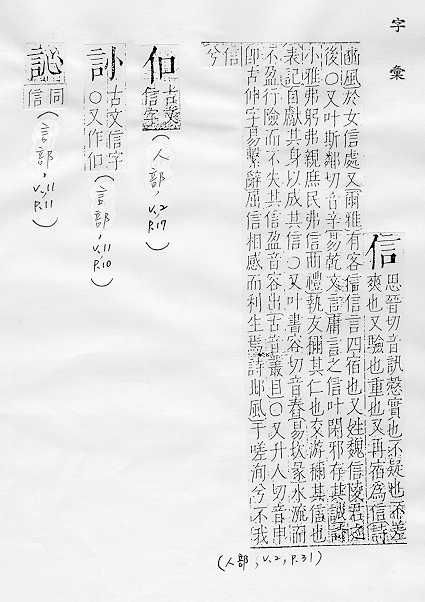 字彙
信 思晉切音訊愨實也不疑也不差
爽也又驗也重也又再宿為信詩
豳風於女信處又爾雅有客信信言四宿也又姓魏信陵君之
後〇又叶斯鄰切音辛易乾文言庸言之信叶閑邪存其誠詩
小雅弗躬弗親庶民弗信曲禮執友稱其仁也交游稱其信也
表記自獻其身以成其信〇又叶書容切音舂易坎彖水流而
不盈行險而不失其信盈音容出古音叢目〇又升人切音申
即古伸字易繫辭屈信相感而利生焉詩邶風于嗟洵兮不我
信兮
(人部, v.2, p.31)
㐰 古文信字 (人部, v.2 p.17)
訫 古文信字〇又作㐰 (言部, v.11 p.10)